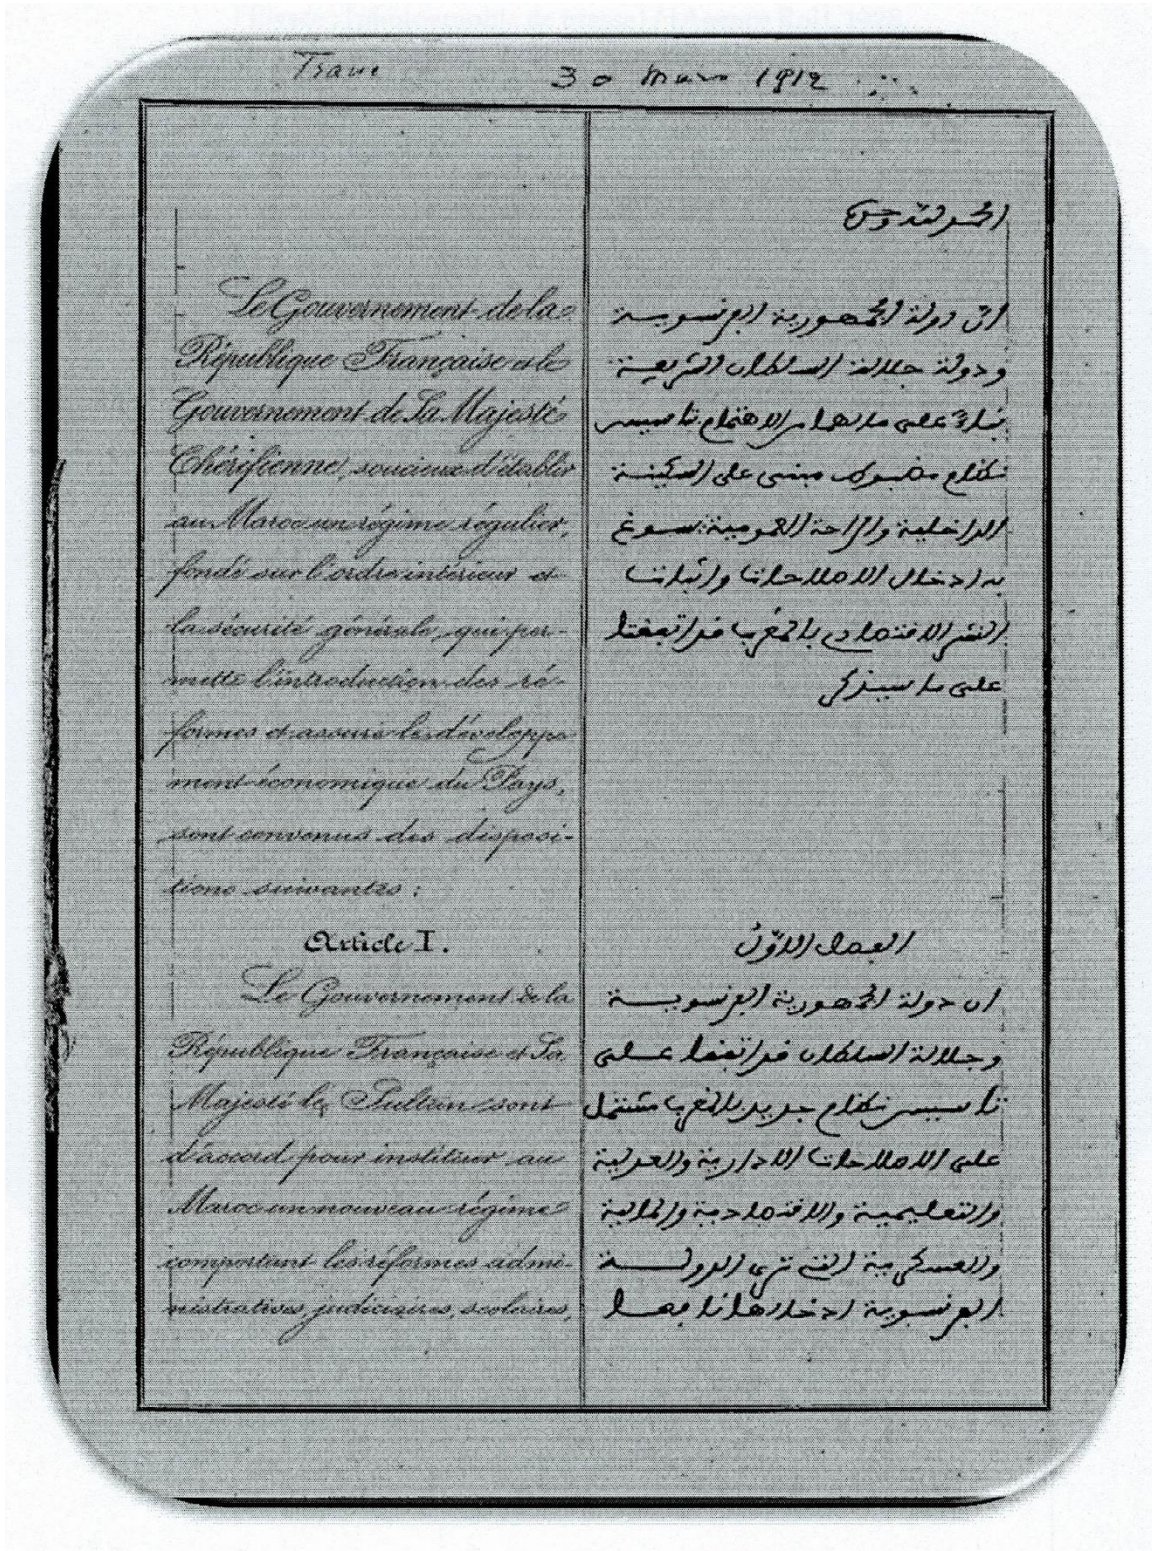 30 Mars 1912
Le Gouvernement de la
République Française et le
Gouvernement de Sa Majesté
Chérifienne, soucieux d'établir
au Maroc un régime régulier,
fondé sur l'ordre intérieur et
la sécurité générale, qui per-
mette l'introduction des ré-
formes et assure le développe-
ment économique du Pays,
sont convenus des disposi-
tions suivantes :
Article I.
Le Gouvernement de la
République Française et Sa
Majesté le Sultan sont
d'accord pour instituer au
Maroc un nouveau régime
comportant les réformes admi-
nistratives, judiciaires, scolaires,
الحمد لله وحده
ان دولة الجمهورية الفرنسوية
ودولة جلالة السلطان الشريفة
بناء على ما لهما من الاهتمام بتاسيس
نظام مضبوط مبني على السكينة
الداخلية والراحة العمومية يسوغ
به ادخال الاصلاحات واثبات
النشر الاقتصادي بالمغرب قد اتفقتا
على ما سيذكر
الفصل الاول
ان دولة الجمهورية الفرنسوية
وجلالة السلطان قد اتفقا على
تاسيس نظام جديد بالمغرب مشتمل
على الاصلاحات الادارية والعدلية
والتعليمية والاقتصادية والمالية
والعسكرية التي ترى الدولة
الفرنسوية ادخالها